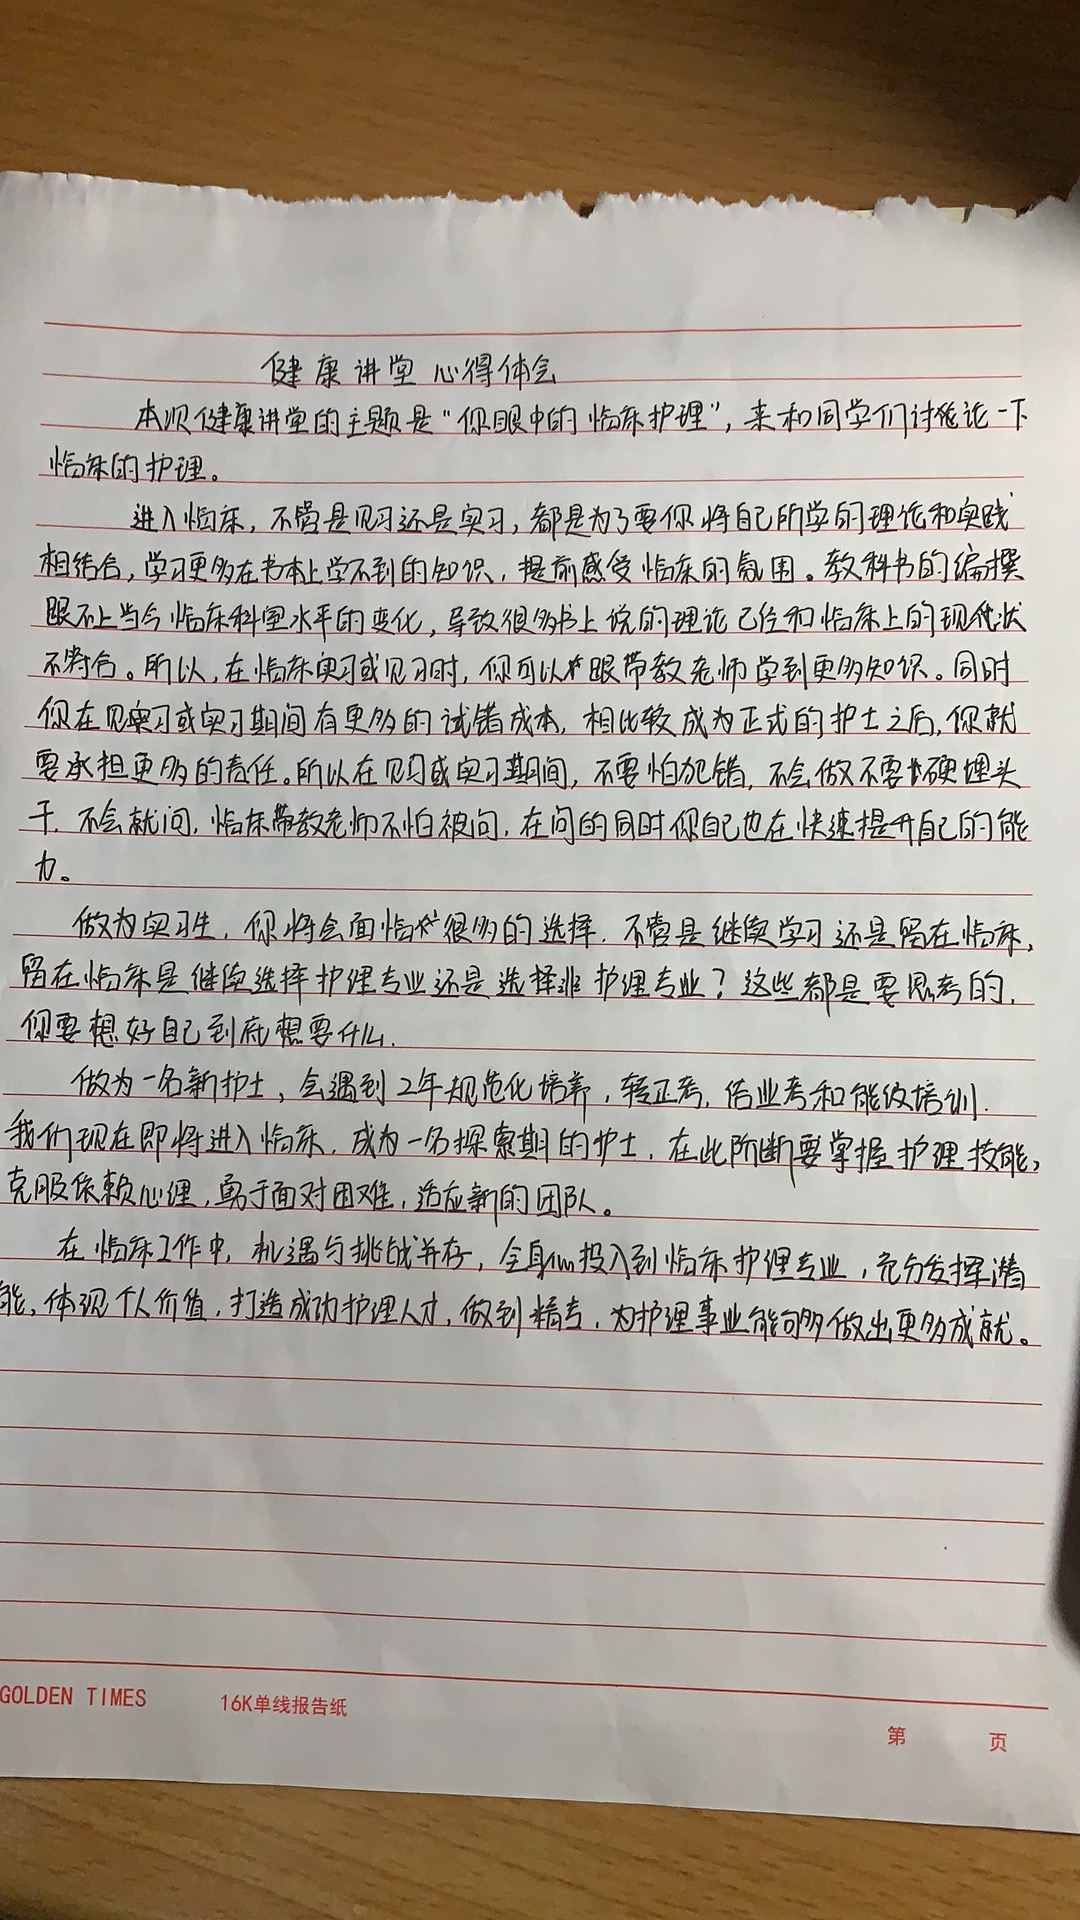 健康讲堂 心得体会
本次健康讲堂的主题是“你眼中的临床护理”，来和同学们讨论一下
临床的护理。
进入临床，不管是见习还是实习，都是为了要你将自己所学的理论和实践
相结合，学习更多在书本上学不到的知识，提前感受临床的氛围。教科书的编撰
跟不上当今临床科室水平的变化，导致很多书上说的理论已经和临床上的现状
不符合。所以，在临床实习或见习时，你可以跟带教老师学到更多知识。同时
你在见习或实习期间有更多的试错成本，相比较成为正式的护士之后，你就
要承担更多的责任。所以在见习或实习期间，不要怕犯错，不会做不要硬埋头
干，不会就问，临床带教老师不怕被问，在问的同时你自己也在快速提升自己的能
力。
做为实习生，你将会面临很多的选择，不管是继续学习还是留在临床，
留在临床是继续选择护理专业还是选择非护理专业？这些都是要思考的，
你要想好自己到底想要什么．
做为一名新护士，会遇到2年规范化培养，转正考，结业考和能级培训．
我们现在即将进入临床，成为一名探索期的护士，在此阶断要掌握护理技能，
克服依赖心理，勇于面对困难，适应新的团队。
在临床工作中，机遇与挑战并存，全身心投入到临床护理专业，充分发挥潜
能，体现个人价值，打造成功护理人才，做到精专，为护理事业能够多做出更多成就。
GOLDEN TIMES 16K单线报告纸
第 页